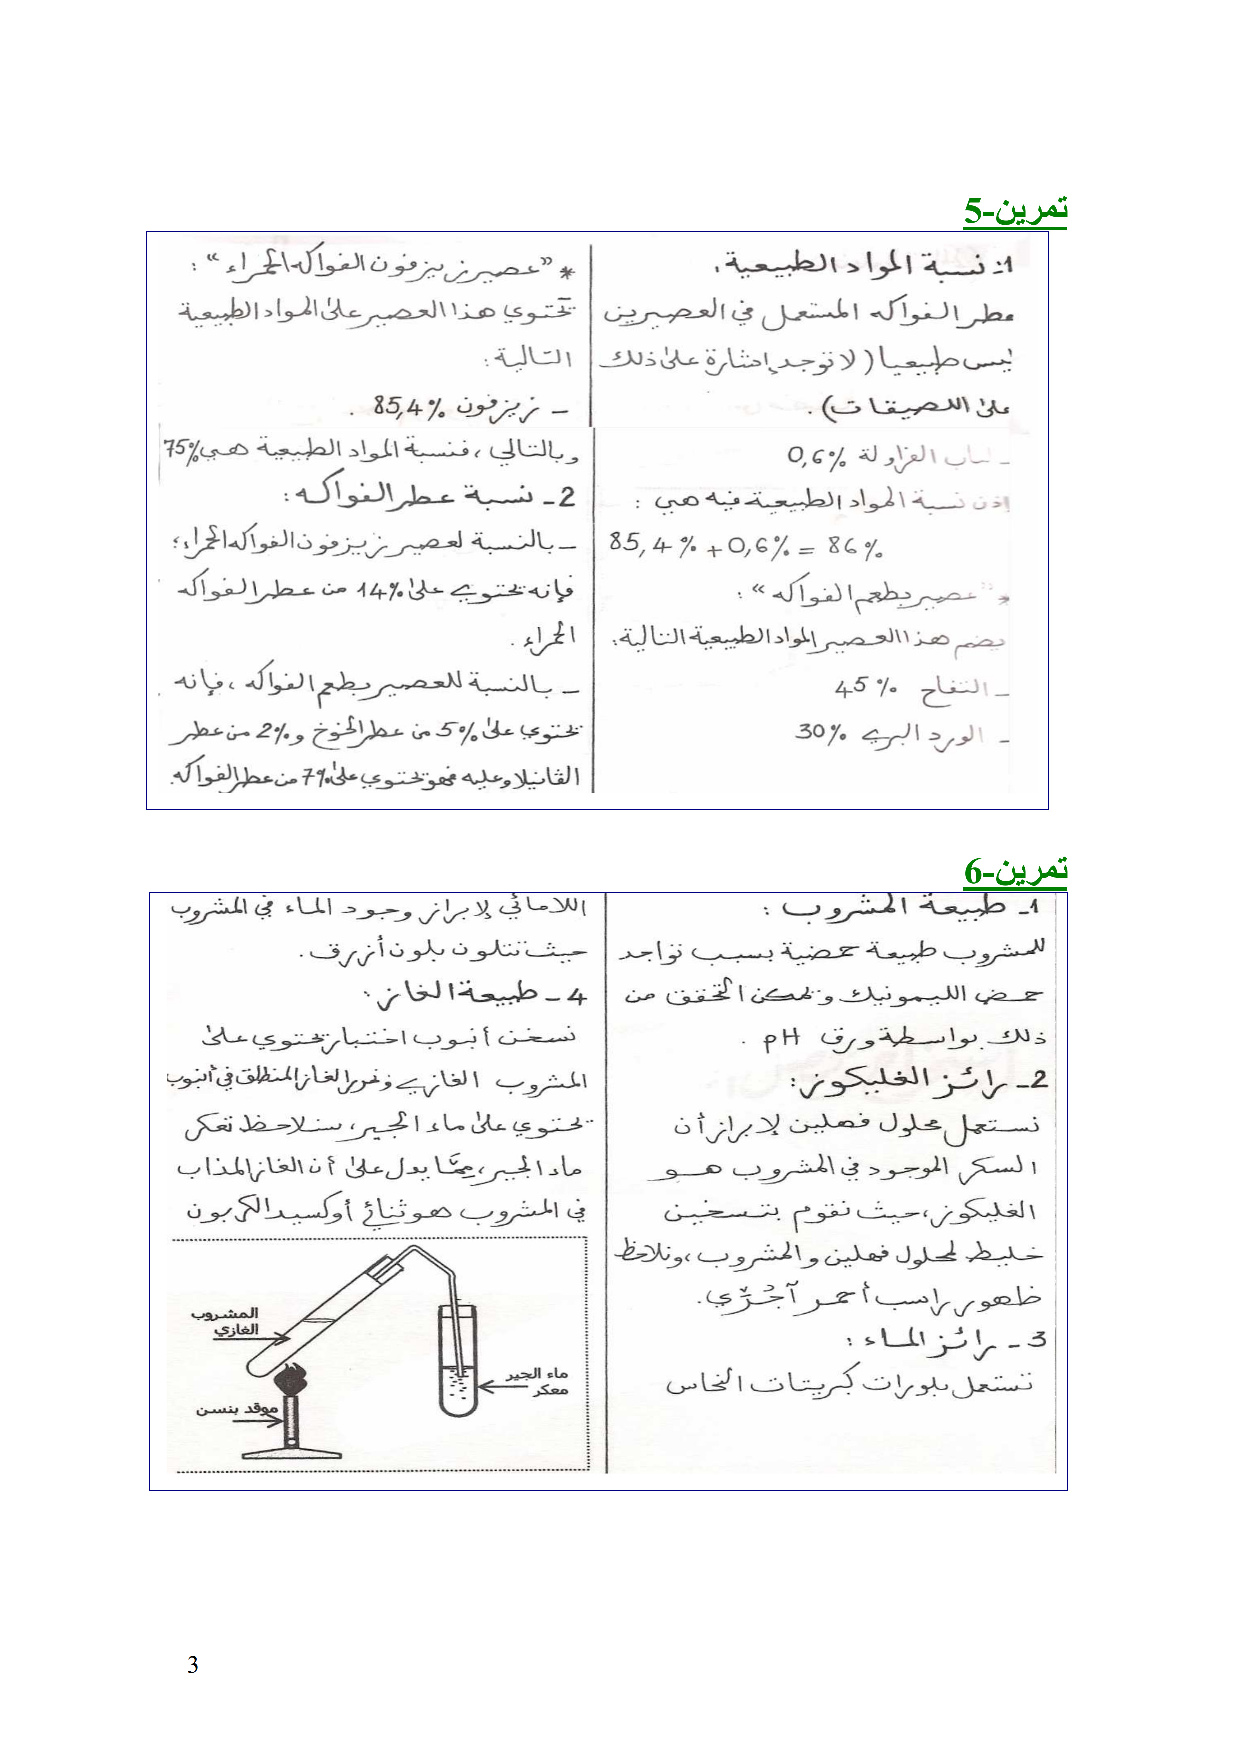 تمرين-5
1: نسبة المواد الطبيعية.
عطر الفواكه المستعمل في العصيرين
ليس طبيعيا (لا توجد إشارة على ذلك
على اللصيقات).
* "عصير زيزفون الفواكه الحمراء" :
تحتوي هذا العصير على المواد الطبيعية
التالية :
- زيزفون 85,4% .
- لباب الفراولة 0,6%
إذن نسبة المواد الطبيعية فيه هي :
85,4% + 0,6% = 86%
* "عصير بطعم الفواكه" :
يضم هذا العصير المواد الطبيعية التالية:
- التفاح 45%
- الورد البري 30%
وبالتالي ، فنسبة المواد الطبيعية هي 75%
2- نسبة عطر الفواكه :
- بالنسبة لعصير زيزفون الفواكه الحمراء؛
فإنه تحتوي على 14% من عطر الفواكه
الحمراء .
- بالنسبة للعصير بطعم الفواكه ، فإنه
تحتوي على 5% من عطر الخوخ و 2% من عطر
الڤانيلا وعليه فهو تحتوي على 7% من عطر الفواكه.
تمرين-6
1- طبيعة المشروب :
للمشروب طبيعة حمضية بسبب تواجد
حمض الليمونيك ويمكن التحقق من
ذلك بواسطة ورق pH .
2- رائز الغليكوز :
نستعمل محلول فهلين لإبراز أن
السكر الموجود في المشروب هو
الغليكوز، حيث نقوم بتسخين
خليط لمحلول فهلين والمشروب ،ونلاحظ
ظهور راسب أحمر آجُرّي.
3- رائز الماء :
نستعمل بلورات كبريتات النحاس
اللامائي لإبراز وجود الماء في المشروب
حيث تتلون بلون أزرق .
4- طبيعة الغاز :
نسخن أنبوب اختبار تحتوي على
المشروب الغازي ونمرر الغاز المنطلق في أنبوب
تحتوي على ماء الجير، سنلاحظ تعكر
ماء الجير، مِمّا يدل على أن الغاز المذاب
في المشروب هو ثنائي أوكسيد الكربون
المشروب
الغازي
ماء الجير
معكر
موقد بنسن
3